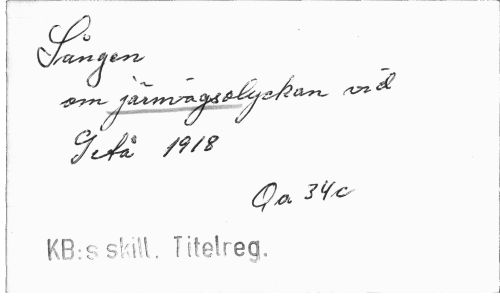 Sången
om järnvägsolyckan vid
Getå 1918
Qa 34c
KB:s skill. Titelreg.